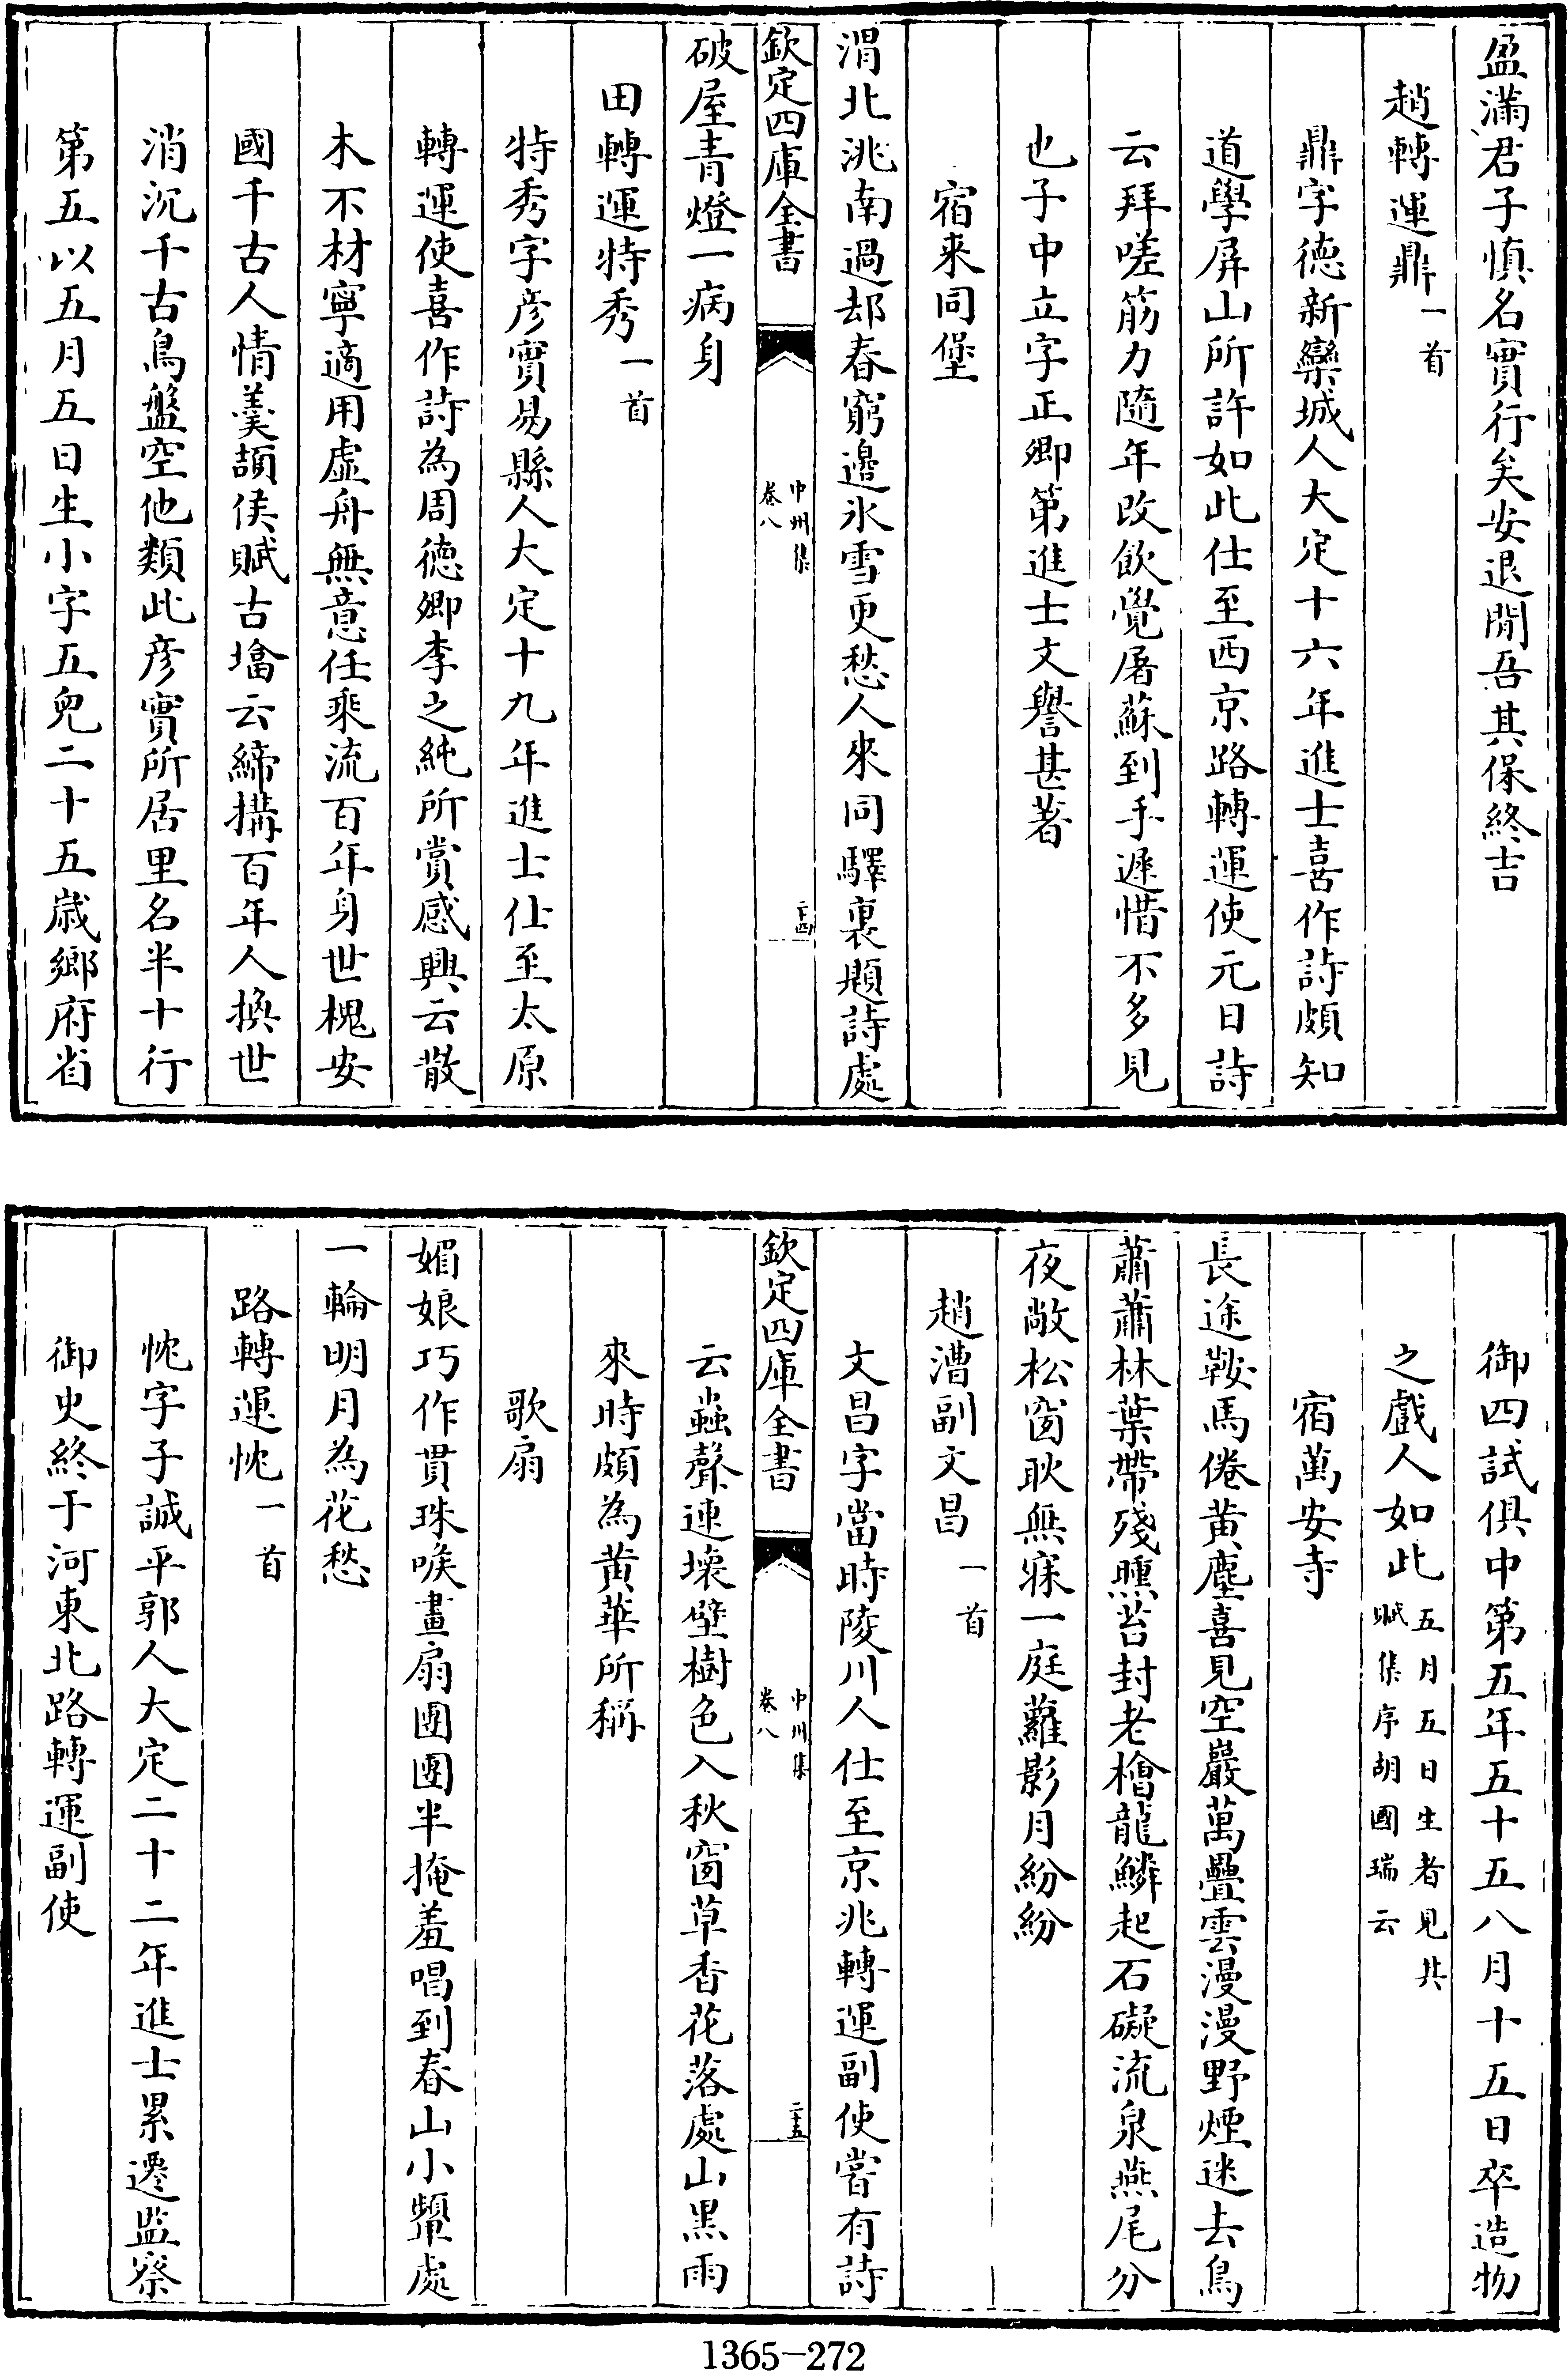 盈滿君子慎名實行矣安退閒吾其保終吉
趙轉運鼎一首
鼎字德新欒城人大定十六年進士喜作詩頗知
道學屏山所許如此仕至西京路轉運使元日詩
云拜嗟筋力隨年改飲覺屠蘇到手遲惜不多見
也子中立字正卿第進士文譽甚著
宿來同堡
渭北洮南過却春窮邉氷雪更愁人來同驛裏題詩處
欽定四庫全書
中州集
卷八
二十四
破屋青燈一病身
田轉運特秀一首
特秀字彦實易縣人大定十九年進士仕至太原
轉運使喜作詩為周徳卿李之純所賞感興云散
木不材寧適用虛舟無意任乘流百年身世槐安
國千古人情羮頡侯賦古墖云締搆百年人換世
消沉千古鳥盤空他類此彦實所居里名半十行
第五以五月五日生小字五兒二十五歲鄉府省
御四試俱中第五年五十五八月十五日卒造物
之戲人如此五月五日生者見其
賦集序胡國瑞云
宿萬安寺
長途鞍馬倦黄塵喜見空巖萬疊雲漫漫野煙迷去鳥
蕭蕭林葉帶殘曛苔封老檜龍鱗起石礙流泉燕尾分
夜敞松窗耿無寐一庭蘿影月紛紛
趙漕副文昌一首
文昌字當時陵川人仕至京兆轉運副使嘗有詩
欽定四庫全書
中州集
卷八
二十五
云蟲聲連壞壁樹色入秋窗草香花落處山黒雨
來時頗為黄華所稱
歌扇
媚娘巧作貫珠喉畫扇團團半掩羞唱到春山小顰處
一輪明月為花愁
路轉運忱一首
忱字子誠平郭人大定二十二年進士累遷監察
御史終于河東北路轉運副使
1365-272